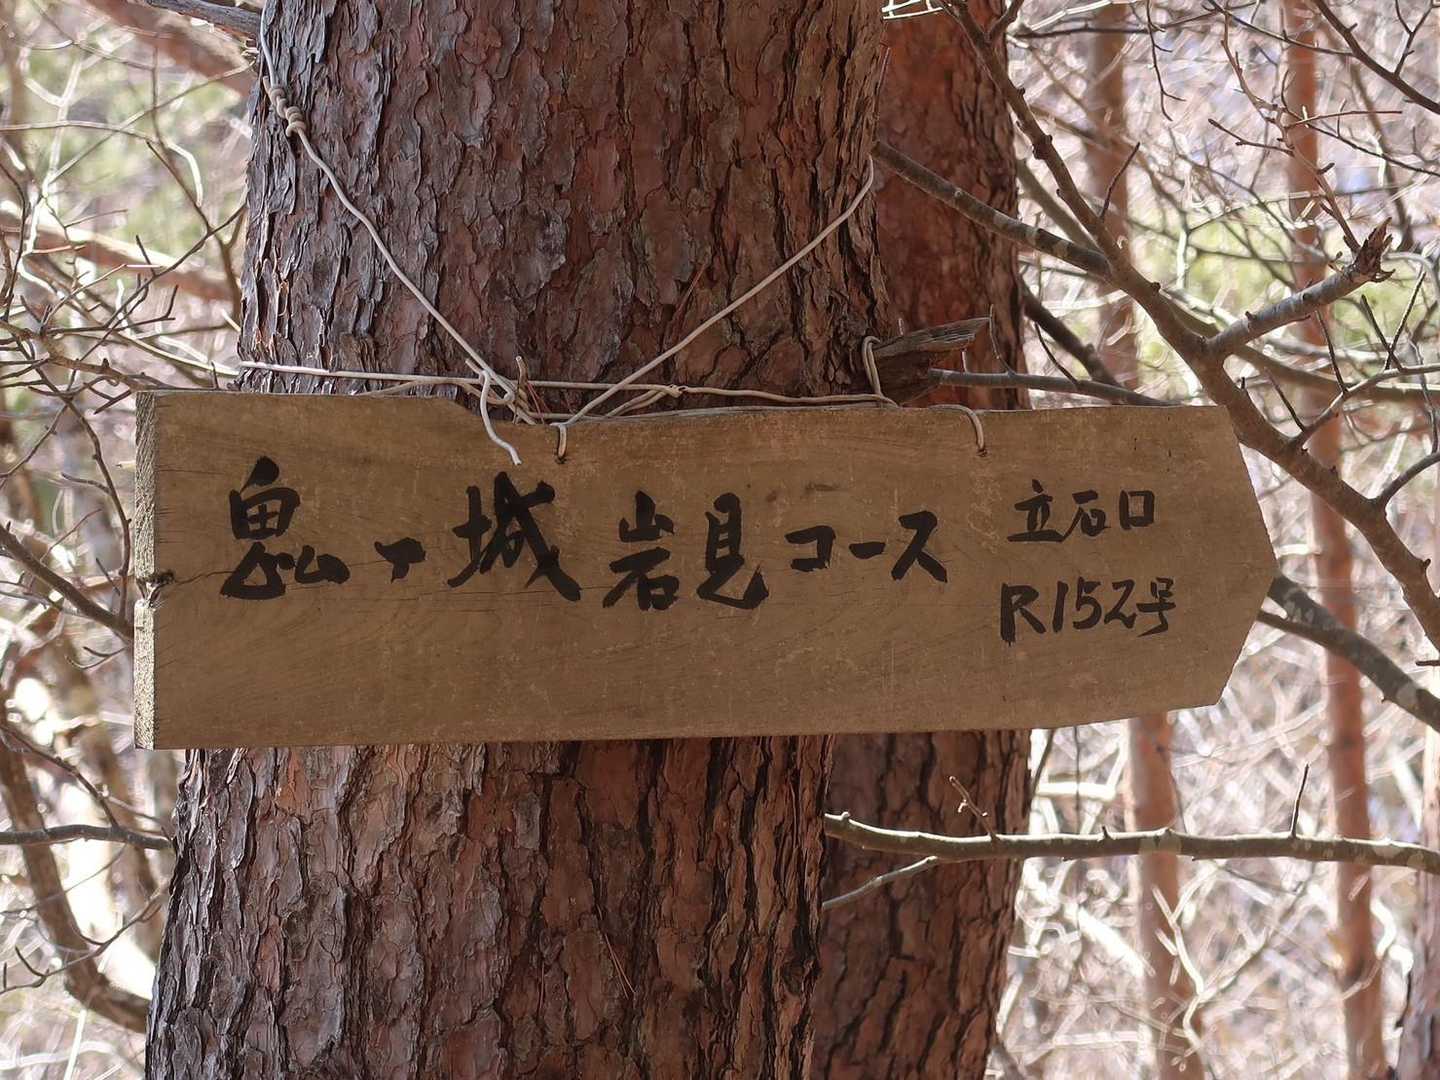 鬼ヶ城岩見コース
立石口
R152号